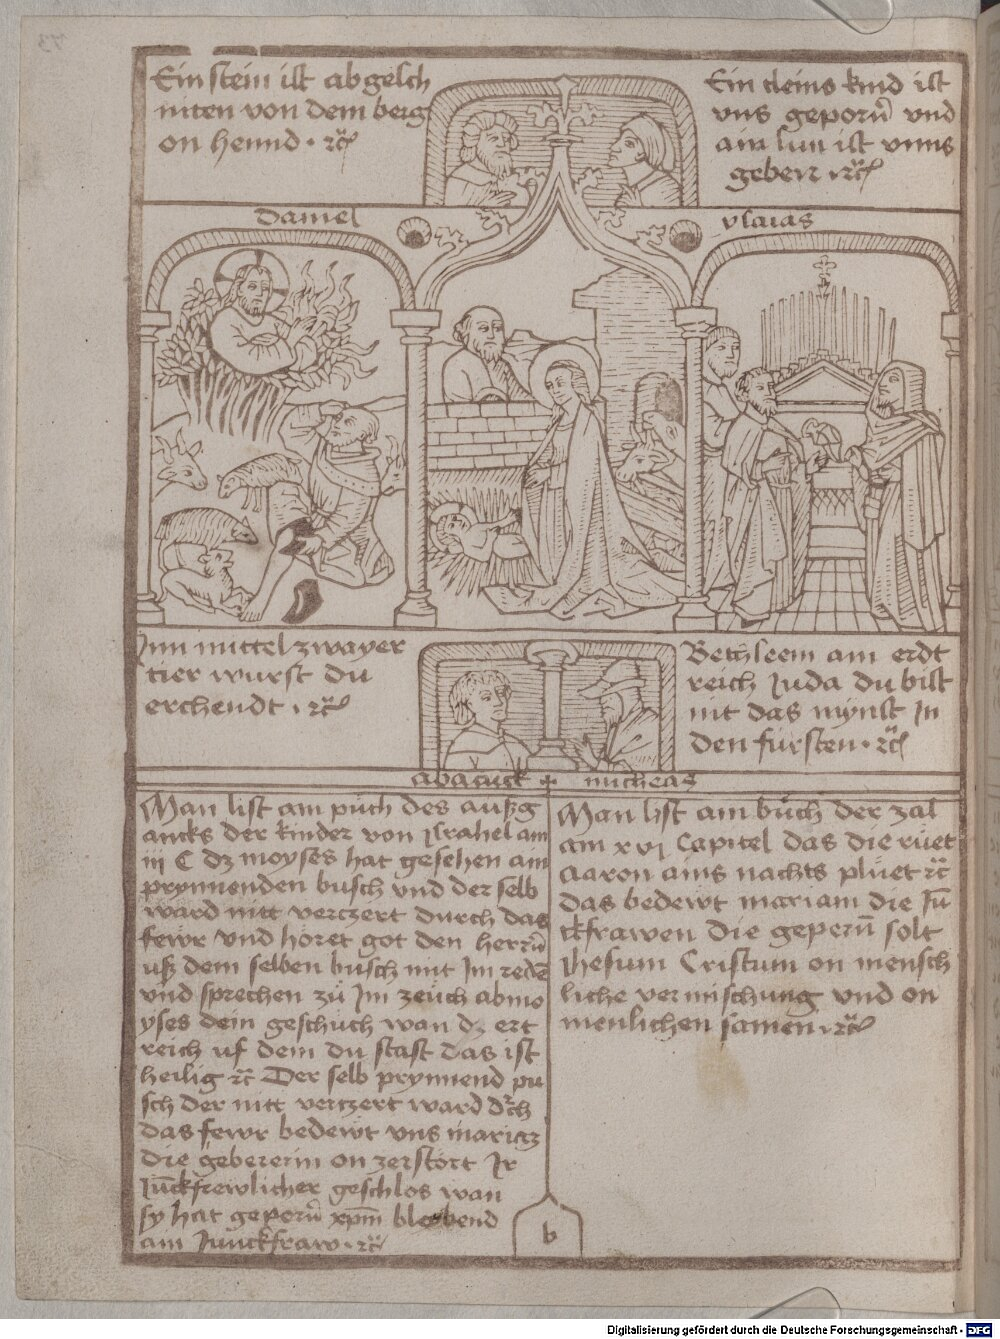 Ein stein ist abgelsch
niten von dem berg
on hennd · ꝛc̃
Ein cleins kind ist
vns geporn̄ vnd
ain sun ist vnns
geben ꝛc̃
daniel
ysaias
Inn mittel zwayer
tier wurst du
erchendt · ꝛc̃
Bethleem am erdt
reich Juda du bist
nit das mynst In
den fürsten · ꝛc̃
abacuck +
micheas
Man list am püch des außg
ancks der kinder von Israhel am
iij C dz moyses hat gesehen am
prynnenden busch vnd der selb
ward nitt verczert durch das
fewr vnd höret got den herrn̄
uß dem selben busch mit Im reden̄
vnd sprechen zů Im zeüch abmo
yses dein geschüch wan dz ert
reich uf dem du stast das ist
heilig ꝛc̃ Der selb prynnend pu
sch der nitt verczert ward dꝛch
das fewr bedewt vns mariaz
die gebererin on zerstört Ir
Jūckfrewlicher geschlos wan
sy hat geporn̄ xpm̄ bleybend
am Junckfraw · ꝛc̃
Man list am büch der zal
am xvij Capitel das die rüet
aaron ains nachts plüet ꝛc̃
das bedewt mariam die Jū
ckfrawen die gepern̄ solt
Jhesum Cristum on mensch
liche vermischung vnd on
menlichen samen · ꝛc̃
b
Digitalisierung gefördert durch die Deutsche Forschungsgemeinschaft - DFG